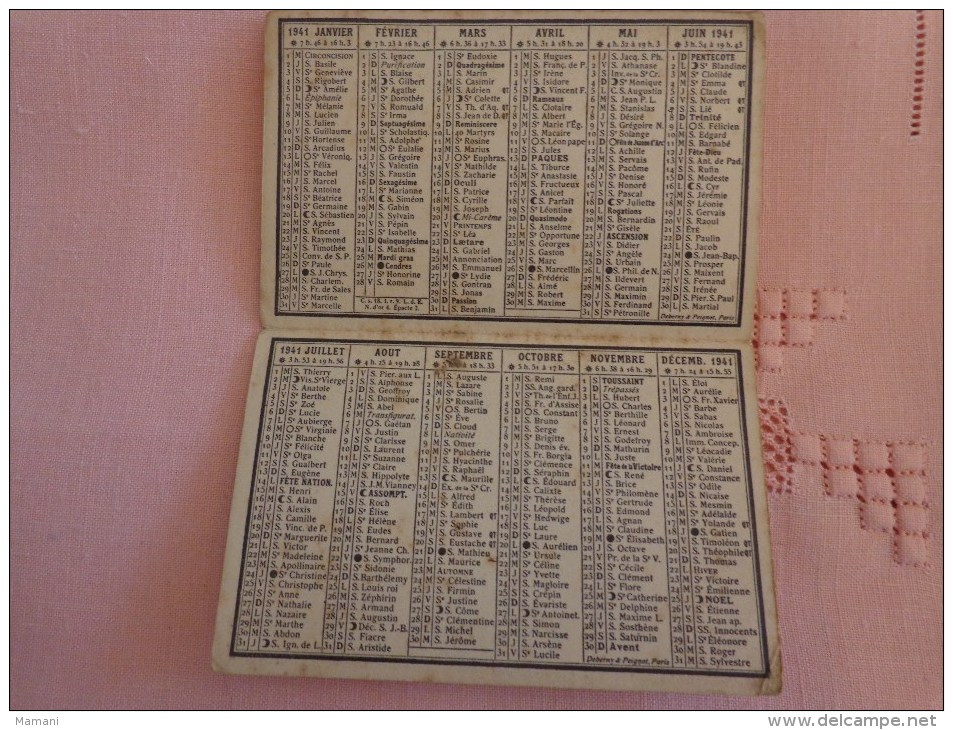 1941 JANVIER
7 h. 46 à 16 h. 3
1 M CIRCONCISION
2 J S. Basile
3 V Sᵉ Geneviève
4 S S. Rigobert
5 D Sᵉ Amélie
6 L Épiphanie
7 M Sᵉ Mélanie
8 M S. Lucien
9 J S. Julien
10 V S. Guillaume
11 S Sᵉ Hortense
12 D S. Arcadius
13 L Sᵉ Véroniq.
14 M S. Félix
15 M Sᵉ Rachel
16 J S. Marcel
17 V S. Antoine
18 S Sᵉ Béatrice
19 D Sᵉ Germaine
20 L S. Sébastien
21 M Sᵉ Agnès
22 M S. Vincent
23 J S. Raymond
24 V S. Timothée
25 S Conv. de S. P.
26 D Sᵉ Paule
27 L S. J. Chrys.
28 M S. Charlem.
29 M S. Fr. de Sales
30 J Sᵉ Martine
31 V Sᵉ Marcelle
FÉVRIER
7 h. 23 à 16 h. 46
1 S S. Ignace
2 D Purification
3 L S. Blaise
4 M S. Gilbert
5 M Sᵉ Agathe
6 J Sᵉ Dorothée
7 V S. Romuald
8 S Sᵉ Irma
9 D Septuagésime
10 L Sᵉ Scholastiq.
11 M S. Adolphe
12 M Sᵉ Eulalie
13 J S. Grégoire
14 V S. Valentin
15 S S. Faustin
16 D Sexagésime
17 L Sᵉ Marianne
18 M S. Siméon
19 M S. Gabin
20 J S. Sylvain
21 V S. Pépin
22 S Sᵉ Isabelle
23 D Quinquagésime
24 L S. Mathias
25 M Mardi gras
26 M Cendres
27 J Sᵉ Honorine
28 V S. Romain
MARS
6 h. 36 à 17 h. 33
1 S Sᵉ Eudoxie
2 D Quadragésime
3 L S. Marin
4 M S. Casimir
5 M S. Adrien
6 J Sᵉ Colette
7 V S. Th. d'Aq.
8 S S. Jean de D.
9 D Reminiscere
10 L 40 Martyrs
11 M S. Rosine
12 M S. Marius
13 J S. Euphras.
14 V Sᵉ Mathilde
15 S S. Zacharie
16 D Oculi
17 L S. Patrice
18 M S. Cyrille
19 M S. Joseph
20 J Mi-Carême
21 V PRINTEMPS
22 S Sᵉ Léa
23 D Lætare
24 L S. Gabriel
25 M Annonciation
26 M S. Emmanuel
27 J Sᵉ Lydie
28 V S. Gontran
29 S S. Jonas
30 D Passion
31 L S. Benjamin
AVRIL
5 h. 31 à 18 h. 20
1 M S. Hugues
2 M S. Franç. de P.
3 J Sᵉ Irène
4 V S. Isidore
5 S S. Vincent F.
6 D Rameaux
7 L S. Clotaire
8 M S. Albert
9 M Sᵉ Marie l'Ég.
10 J S. Macaire
11 V S. Léon pape
12 S S. Jules
13 D PAQUES
14 L S. Tiburce
15 M Sᵉ Anastasie
16 M S. Fructueux
17 J S. Anicet
18 V S. Parfait
19 S Sᵉ Léontine
20 D Quasimodo
21 L S. Anselme
22 M Sᵉ Opportune
23 M S. Georges
24 J S. Gaston
25 V S. Marc
26 S S. Marcellin
27 D S. Frédéric
28 L S. Aimé
29 M S. Robert
30 M S. Maxime
MAI
4 h. 31 à 19 h. 3
1 J S. Jacq. S. Ph.
2 V S. Athanase
3 S Inv. de la Sᵉ Cr.
4 D Sᵉ Monique
5 L C. S. Augustin
6 M S. Jean P. L.
7 M S. Stanislas
8 J S. Désiré
9 V S. Grégoire N.
10 S Sᵉ Solange
11 D Fête de Jeanne d'Arc
12 L S. Achille
13 M S. Servais
14 M S. Pacôme
15 J Sᵉ Denise
16 V S. Honoré
17 S S. Pascal
18 D Sᵉ Juliette
19 L Rogations
20 M S. Bernardin
21 M Sᵉ Gisèle
22 J ASCENSION
23 V S. Didier
24 S Sᵉ Angèle
25 D S. Urbain
26 L S. Phil. de N.
27 M S. Ildevert
28 M S. Germain
29 J S. Maximin
30 V S. Ferdinand
31 S Sᵉ Pétronille
JUIN 1941
3 h. 54 à 19 h. 43
1 D PENTECOTE
2 L Sᵉ Blandine
3 M Sᵉ Clotilde
4 M Sᵉ Emma
5 J S. Claude
6 V S. Norbert
7 S S. Lié
8 D Trinité
9 L S. Félicien
10 M S. Edgard
11 M S. Barnabé
12 J Fête-Dieu
13 V S. Ant. de Pad.
14 S S. Rufin
15 D S. Modeste
16 L S. Cyr
17 M S. Jérémie
18 M Sᵉ Léonie
19 J S. Gervais
20 V S. Raoul
21 S ÉTÉ
22 D S. Paulin
23 L S. Jacob
24 M S. Jean-Bap.
25 M S. Prosper
26 J S. Maixent
27 V S. Fernand
28 S S. Irénée
29 D SS. Pier. S. Paul
30 L S. Martial
Deberny & Peignot, Paris
1941 JUILLET
3 h. 53 à 19 h. 56
1 M S. Thierry
2 M Vis. Sᵉ Vierge
3 J S. Anatole
4 V Sᵉ Berthe
5 S Sᵉ Zoé
6 D Sᵉ Lucie
7 L Sᵉ Aubierge
8 M Sᵉ Virginie
9 M Sᵉ Blanche
10 J Sᵉ Félicité
11 V Sᵉ Olga
12 S S. Gualbert
13 D S. Eugène
14 L FÊTE NATION.
15 M S. Henri
16 M S. Alain
17 J S. Alexis
18 V S. Camille
19 S S. Vinc. de P.
20 D Sᵉ Marguerite
21 L S. Victor
22 M Sᵉ Madeleine
23 M S. Apollinaire
24 J Sᵉ Christine
25 V S. Christophe
26 S Sᵉ Anne
27 D Sᵉ Nathalie
28 L S. Nazaire
29 M Sᵉ Marthe
30 M S. Abdon
31 J S. Ign. de L.
AOUT
4 h. 25 à 19 h. 28
1 V S. Pier. aux L.
2 S S. Alphonse
3 D S. Geoffroy
4 L S. Dominique
5 M S. Abel
6 M Transfigurat.
7 J S. Gaétan
8 V S. Justin
9 S Sᵉ Clarisse
10 D S. Laurent
11 L Sᵉ Suzanne
12 M Sᵉ Claire
13 M S. Hippolyte
14 J S. J.M. Vianney
15 V ASSOMPT.
16 S S. Roch
17 D Sᵉ Élise
18 L Sᵉ Hélène
19 M S. Eudes
20 M S. Bernard
21 J Sᵉ Jeanne Ch.
22 V S. Symphor.
23 S S. Sidonie
24 D S. Barthélemy
25 L S. Louis roi
26 M S. Zéphirin
27 M S. Armand
28 J S. Augustin
29 V Déc. S. J.-B.
30 S S. Fiacre
31 D S. Aristide
SEPTEMBRE
à 18 h. 33
1 L S. Auguste
2 M S. Lazare
3 M Sᵉ Sabine
4 J Sᵉ Rosalie
5 V S. Bertin
6 S Sᵉ Ève
7 D S. Cloud
8 L Nativité
9 M S. Omer
10 M Sᵉ Pulchérie
11 J S. Hyacinthe
12 V S. Raphaël
13 S S. Maurille
14 D Ex. de la Sᵉ Cr.
15 L S. Alfred
16 M Sᵉ Édith
17 M S. Lambert
18 J Sᵉ Sophie
19 V S. Gustave
20 S S. Eustache
21 D S. Mathieu
22 L S. Maurice
23 M AUTOMNE
24 M Sᵉ Célestine
25 J S. Firmin
26 V Sᵉ Justine
27 S S. Côme
28 D Sᵉ Clémentine
29 L S. Michel
30 M S. Jérôme
OCTOBRE
5 h. 51 à 17 h. 30
1 M S. Remi
2 J SS. Ang. gard.
3 V Sᵉ Th. de l'Enf. J.
4 S S. Fr. d'Assise
5 D S. Constant
6 L S. Bruno
7 M S. Serge
8 M Sᵉ Brigitte
9 J S. Denis év.
10 V S. Fr. Borgia
11 S S. Clémence
12 D S. Séraphin
13 L S. Édouard
14 M S. Calixte
15 M Sᵉ Thérèse
16 J S. Léopold
17 V Sᵉ Hedwige
18 S S. Luc
19 D Sᵉ Laure
20 L S. Aurélien
21 M Sᵉ Ursule
22 M Sᵉ Céline
23 J Sᵉ Yvette
24 V S. Magloire
25 S S. Crépin
26 D S. Évariste
27 L Sᵉ Antoinet.
28 M S. Simon
29 M S. Narcisse
30 J S. Arsène
31 V Sᵉ Lucile
NOVEMBRE
6 h. 38 à 16 h. 29
1 S TOUSSAINT
2 D Trépassés
3 L S. Hubert
4 M S. Charles
5 M Sᵉ Berthille
6 J S. Léonard
7 V S. Ernest
8 S S. Godefroy
9 D S. Mathurin
10 L S. Juste
11 M Fête de la Victoire
12 M S. René
13 J S. Brice
14 V Sᵉ Philomène
15 S Sᵉ Gertrude
16 D S. Edmond
17 L S. Agnan
18 M Sᵉ Claudine
19 M Sᵉ Élisabeth
20 J S. Octave
21 V Pr. de la Sᵉ V.
22 S Sᵉ Cécile
23 D S. Clément
24 L Sᵉ Flore
25 M Sᵉ Catherine
26 M Sᵉ Delphine
27 J S. Maxime L.
28 V S. Sosthène
29 S S. Saturnin
30 D Avent
Deberny & Peignot, Paris
DÉCEMB. 1941
7 h. 24 à 15 h. 55
1 L S. Éloi
2 M Sᵉ Aurélie
3 M S. Fr. Xavier
4 J Sᵉ Barbe
5 V S. Sabas
6 S S. Nicolas
7 D S. Ambroise
8 L Imm. Concep.
9 M Sᵉ Léocadie
10 M Sᵉ Valérie
11 J S. Daniel
12 V Sᵉ Constance
13 S Sᵉ Odile
14 D S. Nicaise
15 L S. Mesmin
16 M Sᵉ Adélaïde
17 M Sᵉ Yolande
18 J S. Gatien
19 V S. Timoléon
20 S S. Théophile
21 D S. Thomas
22 L HIVER
23 M Sᵉ Victoire
24 M Sᵉ Émilienne
25 J NOEL
26 V S. Étienne
27 S S. Jean ap.
28 D SS. Innocents
29 L Sᵉ Éléonore
30 M S. Roger
31 M S. Sylvestre
Mamani
www.delcampe.net